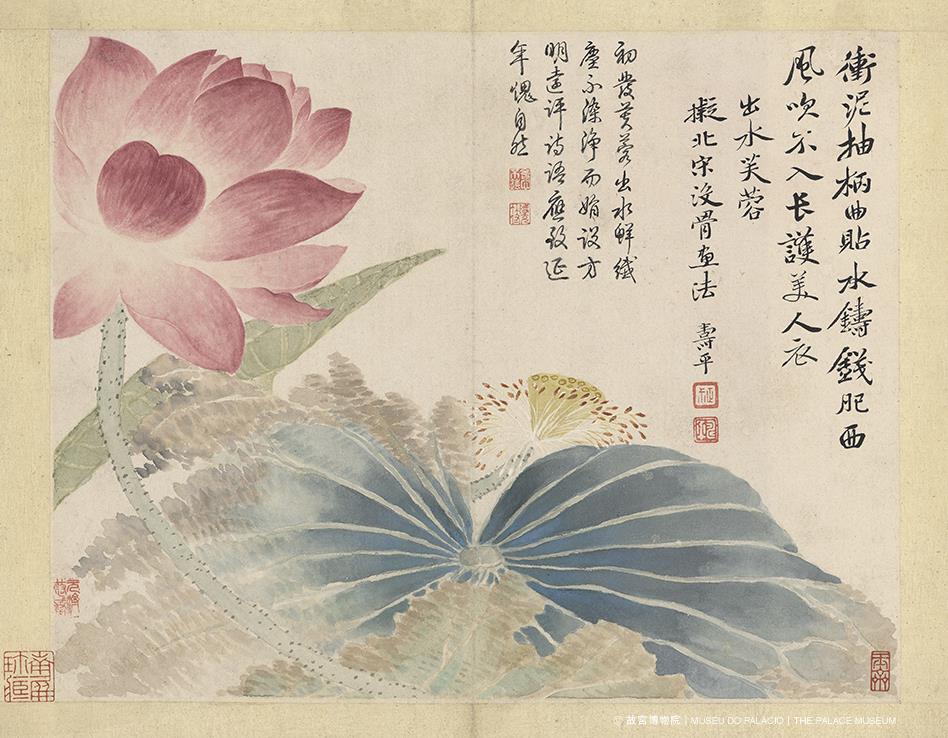 衝泥抽柄曲貼水鑄錢肥西
風吹不入長護美人衣
出水芙蓉
擬北宋没骨畫法 壽平
初發芙蓉出水鮮纖
塵不染淨而娟設方
明遠評詩語應致延
年愧自然
© 故宮博物院 | MUSEU DO PALÁCIO | THE PALACE MUSEUM